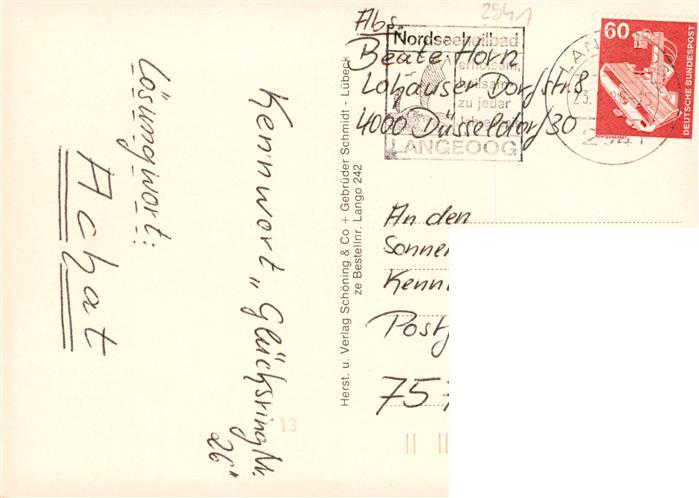 2941
Abs.
Beate Horn
Lohauser Dorfstr. 8
4000 Düsseldorf 30
Nordseeheilbad
erholsam,
heilsam
zu jeder
LANGEOOG
LAN
23.
2941
60
DEUTSCHE BUNDESPOST
An den
Sonnen
Kenn
Post
757
Herst. u. Verlag Schöning & Co + Gebrüder Schmidt - Lübeck
ze Bestellnr. Lango 242
Kennwort „Glücksring Nr.
26"
13
Lösungwort:
Achat